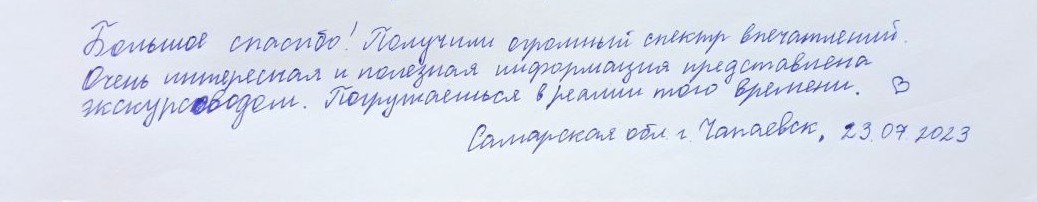 Большое спасибо! Получили огромный спектр впечатлений.
Очень интересная и полезная информация представлена
экскурсоводом. Погружаешься в реалии того времени. ♡
Самарская обл. г. Чапаевск, 23.07.2023